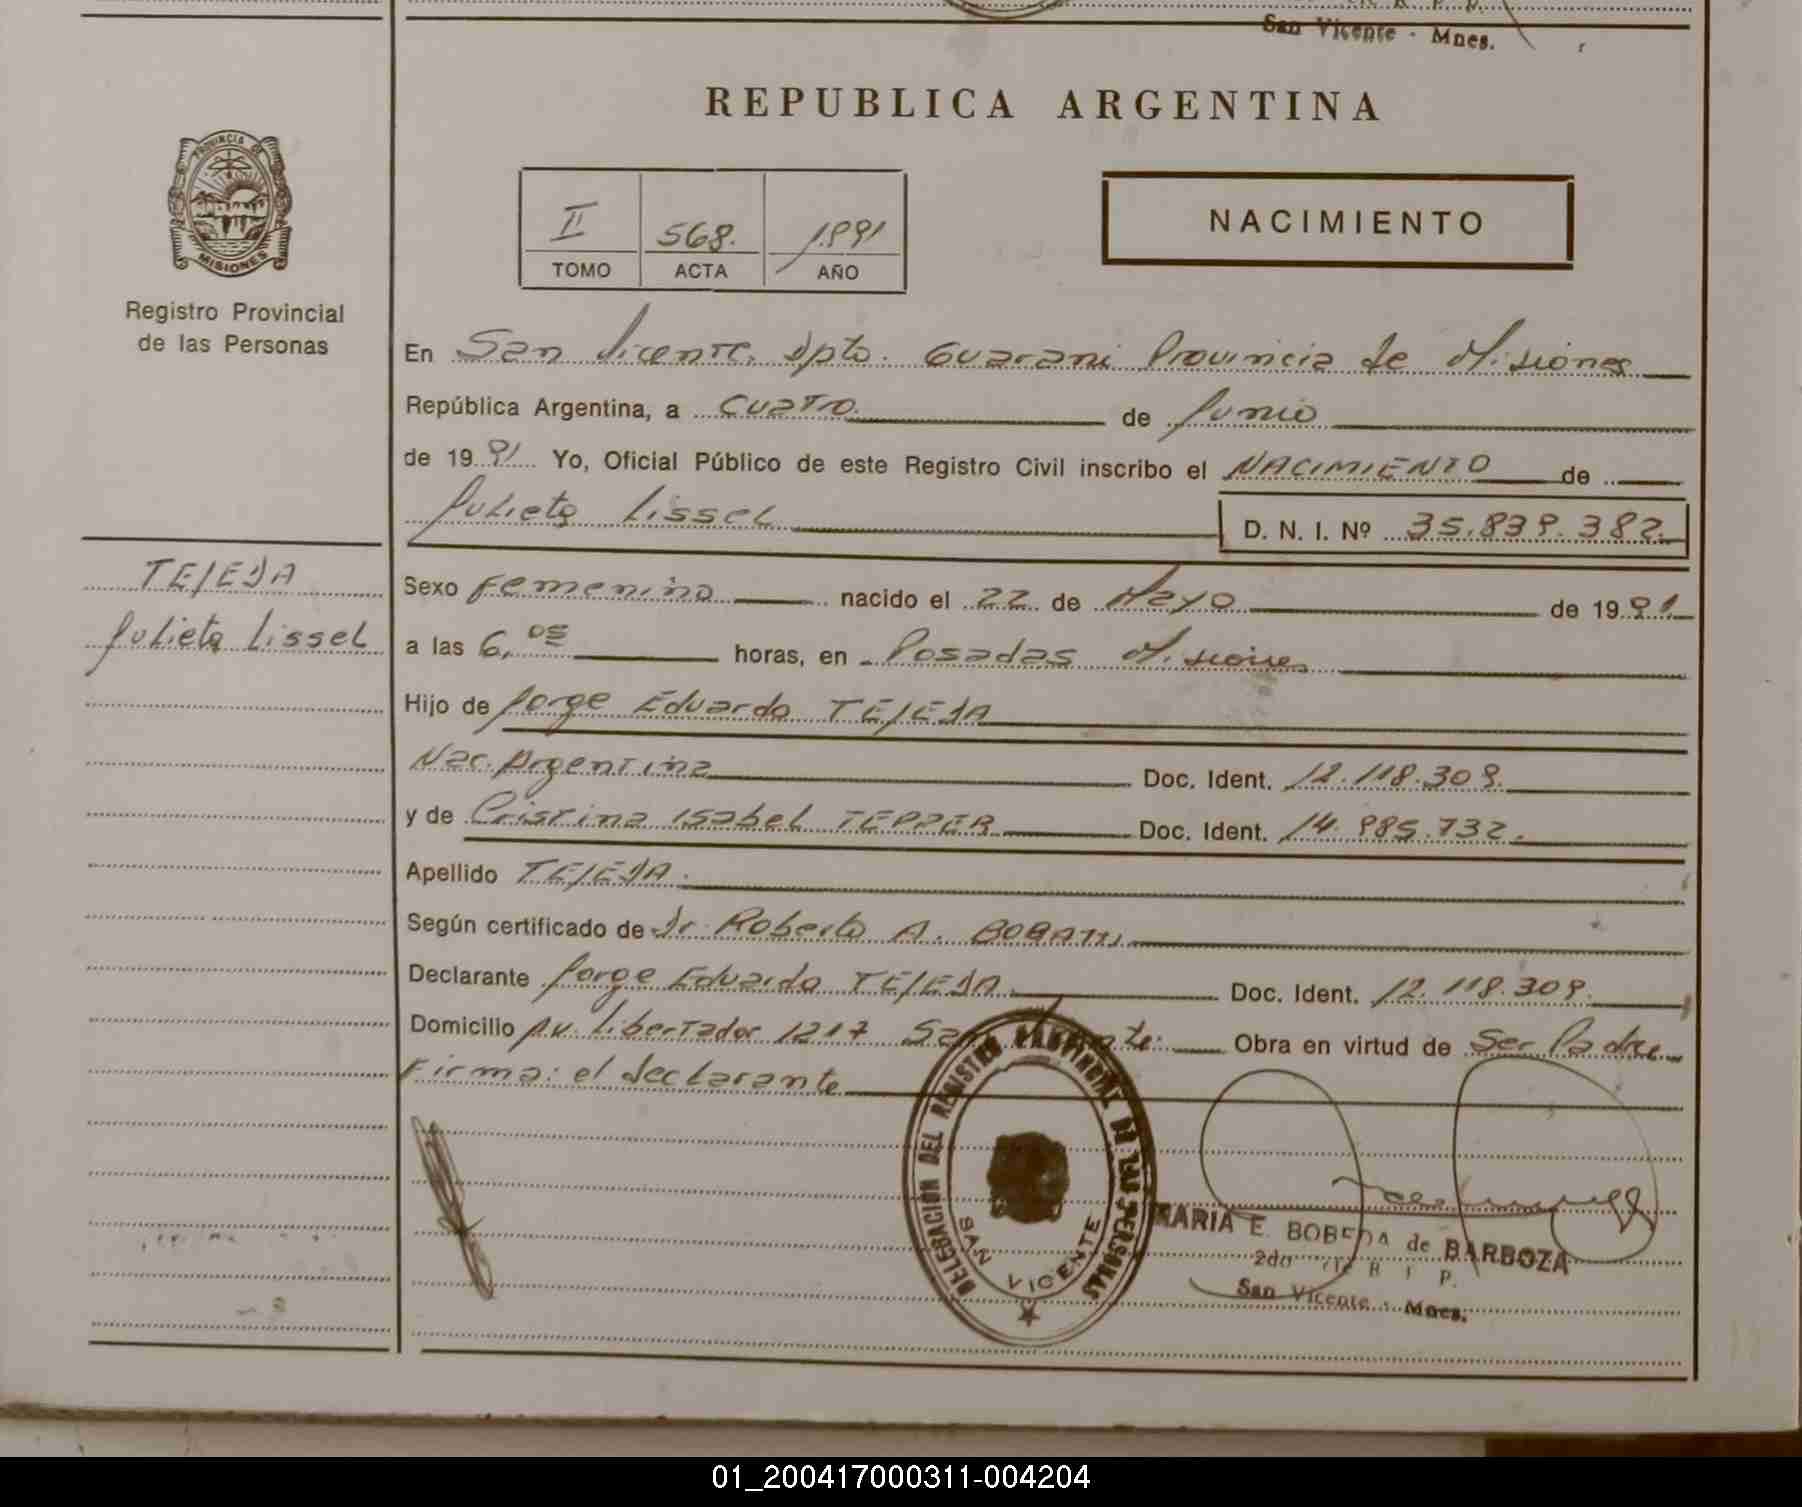 San Vicente - Mnes.
REPUBLICA ARGENTINA
PROVINCIA DE
MISIONES
Registro Provincial
de las Personas
II 568. 1991
TOMO ACTA AÑO
NACIMIENTO
En San Vicente. Dpto. Guarani Provincia de Misiones
República Argentina, a Cuatro de Junio
de 1991 Yo, Oficial Público de este Registro Civil inscribo el NACIMIENTO de
Julieta Lissel D. N. I. Nº 35.839.382.
TEJEDA
Julieta Lissel
Sexo Femenino nacido el 22 de Mayo de 1991.
a las 6,05 horas, en Posadas Misiones
Hijo de Jorge Eduardo TEJEDA
Nac. Argentina Doc. Ident. 12.118.309.
y de Cristina Isabel TEPPER Doc. Ident. 14.985.732.
Apellido TEJEDA.
Según certificado de Dr. Roberto A.
Declarante Jorge Eduardo TEJEDA Doc. Ident. 12.118.309.
Domicilio Av. Libertador 1217 San Vicente. Obra en virtud de Ser Padre
Firma: el declarante
DELEGACION DEL REGISTRO PROVINCIAL DE LAS PERSONAS
SAN VICENTE
MARIA E. BOBEDA de BARBOZA
2do R P.
San Vicente - Mnes.
01_200417000311-004204